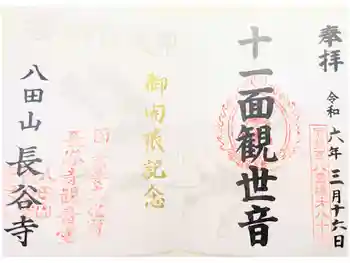 奉拝
令和六年三月十六日
十一面観世音
御開帳記念
八田山
長谷寺